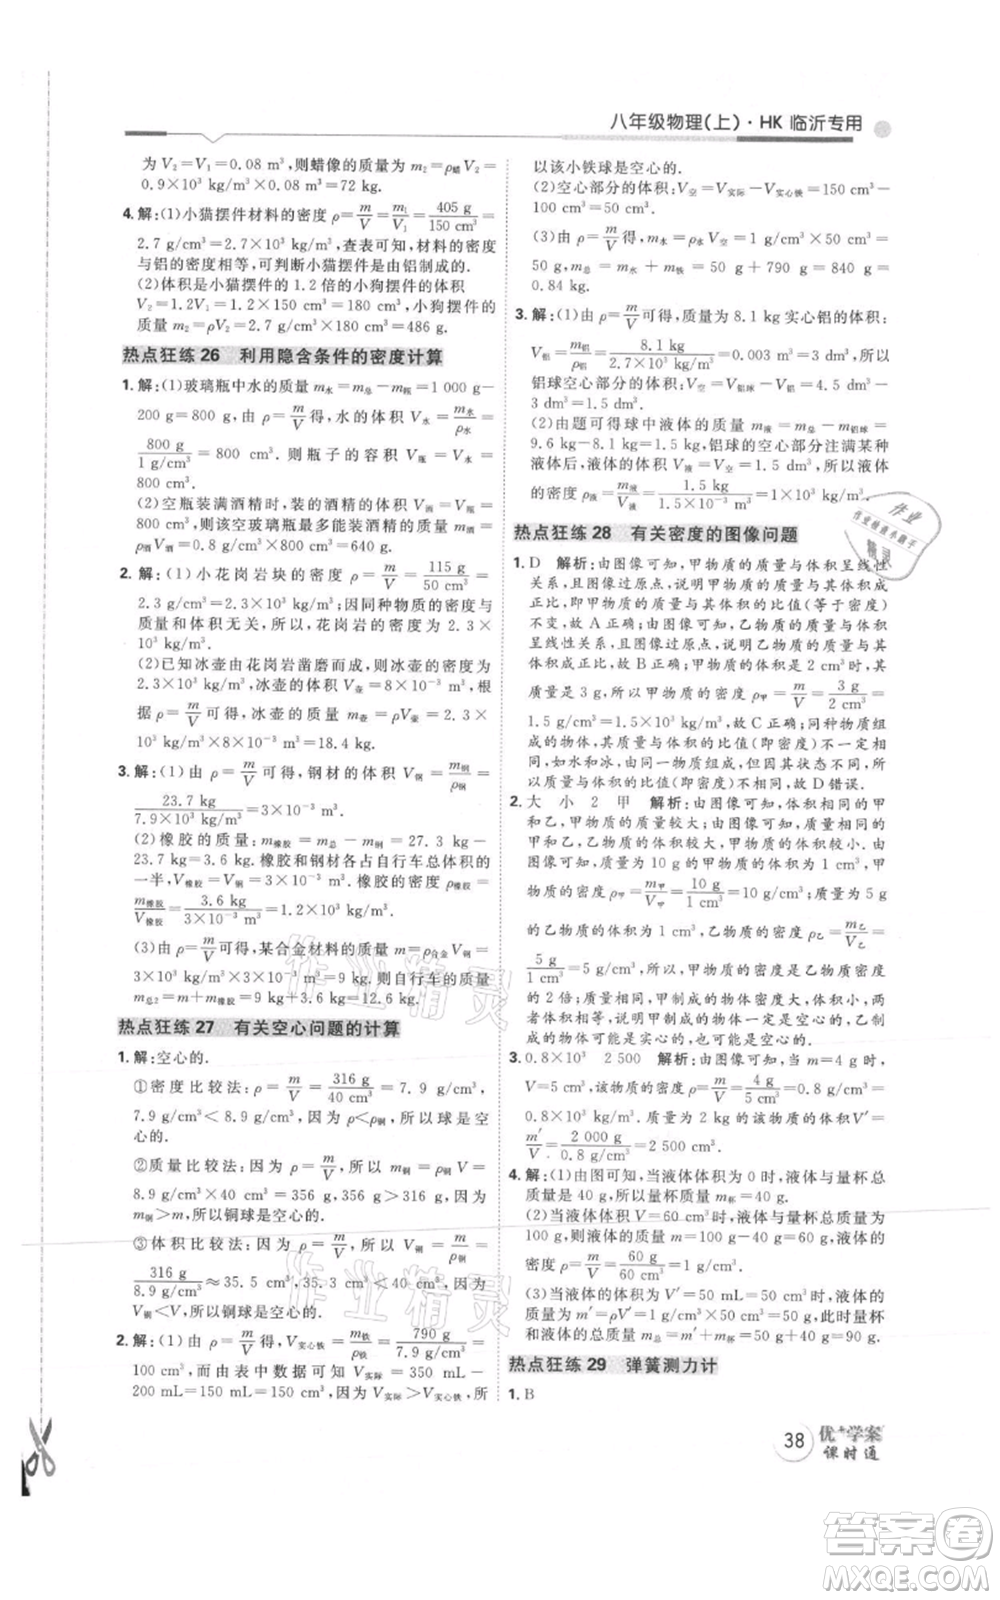 八年级物理(上)·HK 临沂专用
为 V₂=V₁=0.08 m³,则蜡像的质量 m₂=ρ蜡V₂=
0.9×10³ kg/m³×0.08 m³=72 kg.
4.解:(1)小猫摆件材料的密度 ρ=m/V=m₁/V₁=405 g/150 cm³=
2.7 g/cm³=2.7×10³ kg/m³,查表可知,材料的密度
与铝的密度相等,可判断小猫摆件是由铝制成的.
(2)体积是小猫摆件的 1.2 倍的小狗摆件的体积
V₂=1.2V₁=1.2×150 cm³=180 cm³,小狗摆件的
质量 m₂=ρV₂=2.7 g/cm³×180 cm³=486 g.
热点狂练 26 利用隐含条件的密度计算
1.解:(1)玻璃瓶中水的质量 m水=m总-m瓶=1 000 g-
200 g=800 g,由 ρ=m/V得,水的体积 V水=m水/ρ水=
800 g/1 g/cm³=800 cm³,则瓶子的容积 V瓶=V水=
800 cm³.
(2)空瓶装满酒精时,装的酒精的体积 V酒精=V瓶=
800 cm³,则该空玻璃瓶最多能装酒精的质量 m酒精=
ρ酒精V酒精=0.8 g/cm³×800 cm³=640 g.
2.解:(1)小花岗岩块的密度 ρ=m/V=115 g/50 cm³=
2.3 g/cm³=2.3×10³ kg/m³;因同种物质的密度与
质量和体积无关,所以,花岗岩的密度为 2.3×10³
kg/m³.
(2)已知冰壶由花岗岩凿磨而成,则冰壶的密度为
2.3×10³ kg/m³,冰壶的体积 V壶=8×10⁻³ m³,根
据 ρ=m/V可得,冰壶的质量 m壶=ρV壶=2.3×10³
kg/m³×8×10⁻³ m³=18.4 kg.
3.解:(1)由 ρ=m/V可得,钢材的体积 V钢=m钢/ρ钢=
23.7 kg/7.9×10³ kg/m³=3×10⁻³ m³.
(2)橡胶的质量:m橡胶=m总-m钢=27.3 kg-
23.7 kg=3.6 kg.橡胶和钢材各占自行车总体积的
一半,V橡胶=V钢=3×10⁻³ m³.橡胶的密度 ρ橡胶=
m橡胶/V橡胶=3.6 kg/3×10⁻³ m³=1.2×10³ kg/m³.
(3)由 ρ=m/V可得,某合金材料的质量 m=ρ合金V钢=
3×10³ kg/m³×3×10⁻³ m³=9 kg.则自行车的质量
m总2=m+m橡胶=9 kg+3.6 kg=12.6 kg.
热点狂练 27 有关空心问题的计算
1.解:空心的.
①密度比较法:ρ=m/V=316 g/40 cm³=7.9 g/cm³,
7.9 g/cm³<8.9 g/cm³,因为 ρ<ρ铜,所以球是空
心的.
②质量比较法:因为 ρ=m/V,所以 m铜=ρ铜V=
8.9 g/cm³×40 cm³=356 g,356 g>316 g,因为
m铜>m,所以铜球是空心的.
③体积比较法:因为 ρ=m/V,所以 V铜=m/ρ铜=
316 g/8.9 g/cm³≈35.5 cm³,35.5 cm³<40 cm³,因为
V铜<V,所以铜球是空心的.
2.解:(1)由 ρ=m/V得,V实心铁=m铁/ρ铁=790 g/7.9 g/cm³=
100 cm³,由表中数据可知 V实际=350 mL-
200 mL=150 mL=150 cm³,因为 V实际>V实心铁,所
以该小铁球是空心的.
(2)空心部分的体积:V空=V实际-V实心铁=150 cm³-
100 cm³=50 cm³.
(3)由 ρ=m/V得,m水=ρ水V空=1 g/cm³×50 cm³=
50 g,m总=m水+m铁=50 g+790 g=840 g=
0.84 kg.
3.解:(1)由 ρ=m/V得,质量为 8.1 kg 实心铝的体积:
V铝=m铝/ρ铝=8.1 kg/2.7×10³ kg/m³=3×10⁻³ m³=3 dm³,所以
铝球空心部分的体积:V空=V铝球-V铝=4.5 dm³-
3 dm³=1.5 dm³.
(2)由题可得球中液体的质量 m液=m总-m铝球=
9.6 kg-8.1 kg=1.5 kg,铝球的空心部分注满某种
液体后,液体的体积 V液=V空=1.5 dm³,所以液体
的密度 ρ液=m液/V液=1.5 kg/1.5×10⁻³ m³=1×10³ kg/m³.
热点狂练 28 有关密度的图像问题
1.D 解析:由图像可知,甲物质的质量与体积呈线性
关系,且图像过原点,说明甲物质的质量与体积
成正比,即甲物质的质量与其体积的比值(等于密度)
不变,故 A 正确;由图像可知,乙物质的质量与体积
呈线性关系,且图像过原点,说明乙物质的质量与体
积成正比,故B正确;由图像可知,甲物质体积是 2 cm³时,
质量是 3 g,所以甲物质的密度 ρ甲=m/V=3 g/2 cm³=
1.5 g/cm³=1.5×10³ kg/m³,故 C 正确;同种物质组
成的物体,质量与体积的比值(即密度)不变,不同物
质组成的物体,如果质量相等,但体积大小不同,所
以质量与体积的比值(即密度)不等,故 D 错误.
2.大 小 2 甲 解析:由图像可知,体积相同的甲
和乙,甲物质的质量较大;由图像可知,质量相同的甲
和乙,乙物质的体积较大,甲物质的体积较小;由图
像可知,质量为 10 g 的甲物质的体积为 1 cm³,甲
物质的密度 ρ甲=m甲/V甲=10 g/1 cm³=10 g/cm³,质量为 5 g
的乙物质的体积为 1 cm³,乙物质的密度 ρ乙=m乙/V乙=
5 g/1 cm³=5 g/cm³,所以,甲物质的密度是乙物质密度
的 2 倍;由题意知,甲制成的物体的体积大于乙制
成的物体的体积,甲制成的物体一定是空心的,乙制
成的物体可能是实心的,也可能是空心的.
3.0.8×10³ 2 500 解析:由图像可知,当 m=4 g 时,
V=5 cm³,该物质的密度 ρ=m/V=4 g/5 cm³=0.8 g/cm³=
0.8×10³ kg/m³.质量为 2 kg 的该物质的体积 V′=
m′/ρ=2 000 g/0.8 g/cm³=2 500 cm³.
4.解:(1)由图可知,当液体体积为 0 时,液体与量杯总
质量是 40 g,所以量杯质量 m杯=40 g.
(2)当液体体积 V=60 cm³时,液体与量杯总质量为
100 g,则液体的质量 m=100 g-40 g=60 g,液体的
密度 ρ=m/V=60 g/60 cm³=1 g/cm³.
(3)当液体的体积 V′=20 cm³时,液体的
质量为 m′=ρV′=1 g/cm³×20 cm³=20 g,此时量杯
和液体的总质量 m总=m′+m杯=20 g+40 g=60 g.
热点狂练 29 弹簧测力计
1.B
38 优+学案
课时通
作业
作业检查小助手
精灵
作业精灵
作业精灵
答案卷
MXQE.COM